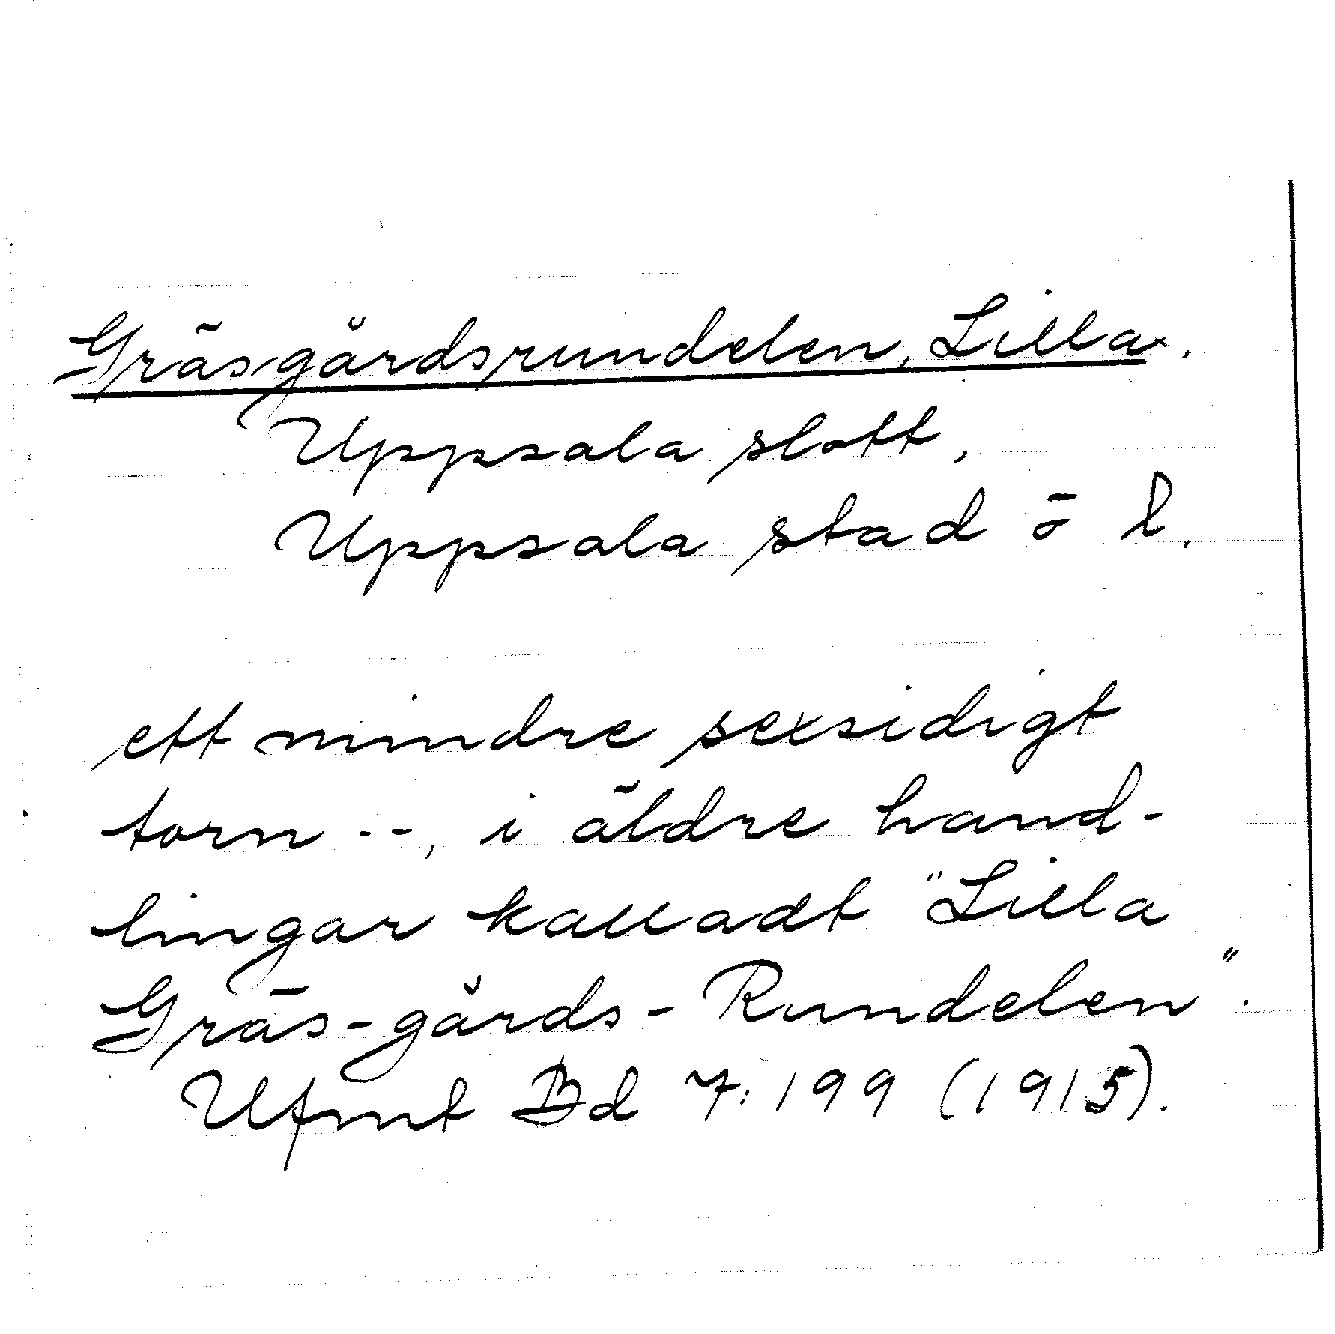 Gräsgårdsrundelen, Lilla.
Uppsala slott,
Uppsala stad ö l.
ett mindre sexsidigt
torn --, i äldre hand-
lingar kalladt "Lilla
Gräs-gårds-Rundelen".
Ufmt Bd 7:199 (1915).